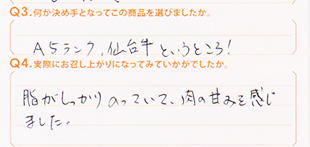 Q3.何が決め手となってこの商品を選びましたか。
A5ランク、仙台牛というところ!
Q4.実際にお召し上がりになってみていかがでしたか。
脂がしっかりのっていて、肉の甘みを感じ
ました。